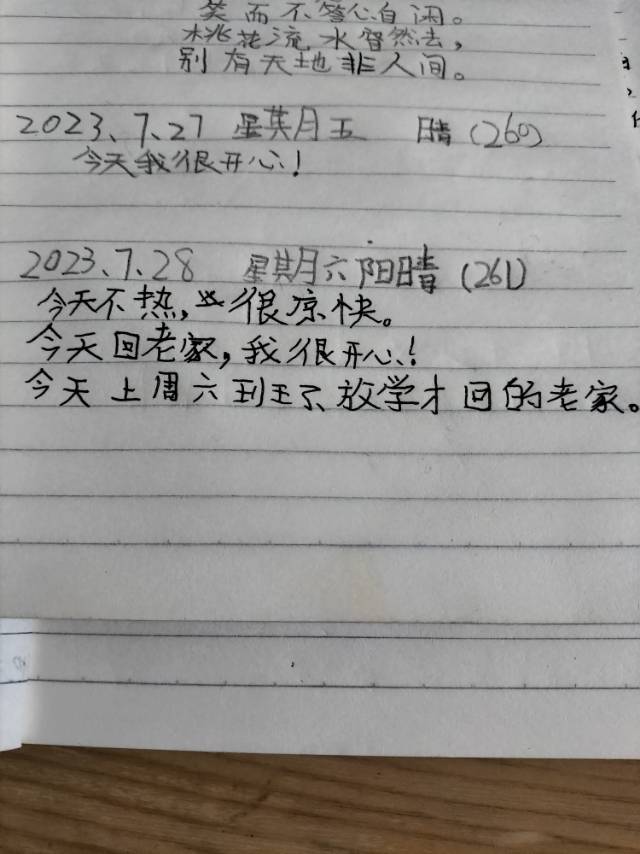 笑而不答心自闲。
桃花流水窅然去，
别有天地非人间。
2023、7、27 星期五 晴（260）
今天我很开心！
2023、7、28 星期六 阳晴（261）
今天不热，很凉快。
今天回老家，我很开心！
今天上周六到班放学才回的老家。